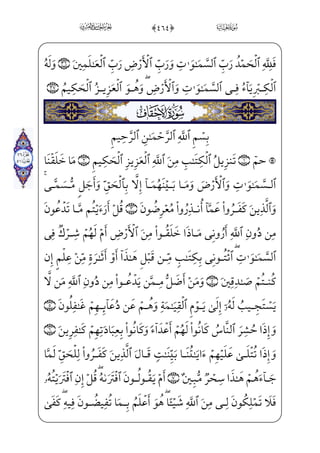 ﴿٤٦٤﴾
فَلِلَّهِ ٱلْحَمْدُ رَبِّ ٱلسَّمَٰوَٰتِ وَرَبِّ ٱلْأَرْضِ رَبِّ ٱلْعَٰلَمِينَ ۝٣٦ وَلَهُ
ٱلْكِبْرِيَآءُ فِى ٱلسَّمَٰوَٰتِ وَٱلْأَرْضِ ۖ وَهُوَ ٱلْعَزِيزُ ٱلْحَكِيمُ ۝٣٧
سُورَةُ ٱلْأَحْقَافِ
بِسْمِ ٱللَّهِ ٱلرَّحْمَٰنِ ٱلرَّحِيمِ
۞ حمٓ ۝١ تَنزِيلُ ٱلْكِتَٰبِ مِنَ ٱللَّهِ ٱلْعَزِيزِ ٱلْحَكِيمِ ۝٢ مَا خَلَقْنَا
ٱلسَّمَٰوَٰتِ وَٱلْأَرْضَ وَمَا بَيْنَهُمَآ إِلَّا بِٱلْحَقِّ وَأَجَلٍ مُّسَمًّى ۚ
وَٱلَّذِينَ كَفَرُوا۟ عَمَّآ أُنذِرُوا۟ مُعْرِضُونَ ۝٣ قُلْ أَرَءَيْتُم مَّا تَدْعُونَ
مِن دُونِ ٱللَّهِ أَرُونِى مَاذَا خَلَقُوا۟ مِنَ ٱلْأَرْضِ أَمْ لَهُمْ شِرْكٌ فِى
ٱلسَّمَٰوَٰتِ ۖ ٱئْتُونِى بِكِتَٰبٍ مِّن قَبْلِ هَٰذَآ أَوْ أَثَٰرَةٍ مِّنْ عِلْمٍ إِن
كُنتُمْ صَٰدِقِينَ ۝٤ وَمَنْ أَضَلُّ مِمَّن يَدْعُوا۟ مِن دُونِ ٱللَّهِ مَن لَّا
يَسْتَجِيبُ لَهُۥٓ إِلَىٰ يَوْمِ ٱلْقِيَٰمَةِ وَهُمْ عَن دُعَآئِهِمْ غَٰفِلُونَ ۝٥
وَإِذَا حُشِرَ ٱلنَّاسُ كَانُوا۟ لَهُمْ أَعْدَآءً وَكَانُوا۟ بِعِبَادَتِهِمْ كَٰفِرِينَ ۝٦
وَإِذَا تُتْلَىٰ عَلَيْهِمْ ءَايَٰتُنَا بَيِّنَٰتٍ قَالَ ٱلَّذِينَ كَفَرُوا۟ لِلْحَقِّ لَمَّا
جَآءَهُمْ هَٰذَا سِحْرٌ مُّبِينٌ ۝٧ أَمْ يَقُولُونَ ٱفْتَرَىٰهُ ۖ قُلْ إِنِ ٱفْتَرَيْتُهُۥ
فَلَا تَمْلِكُونَ لِى مِنَ ٱللَّهِ شَيْـًٔا ۖ هُوَ أَعْلَمُ بِمَا تُفِيضُونَ فِيهِ ۖ كَفَىٰ